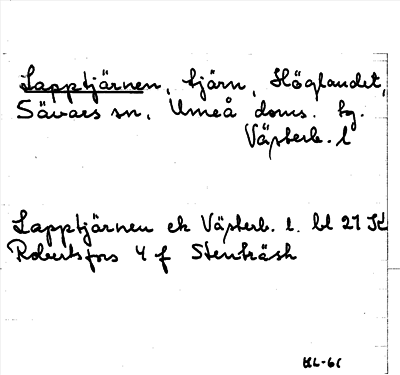 Lapptjärnen, tjärn, Höglandet,
Sävars sn, Umeå doms. tg.
Västerb. l
Lapptjärnen ek Västerb. l. bl 21 SV
Robertsfors 4 f Stenträsk
HL-61